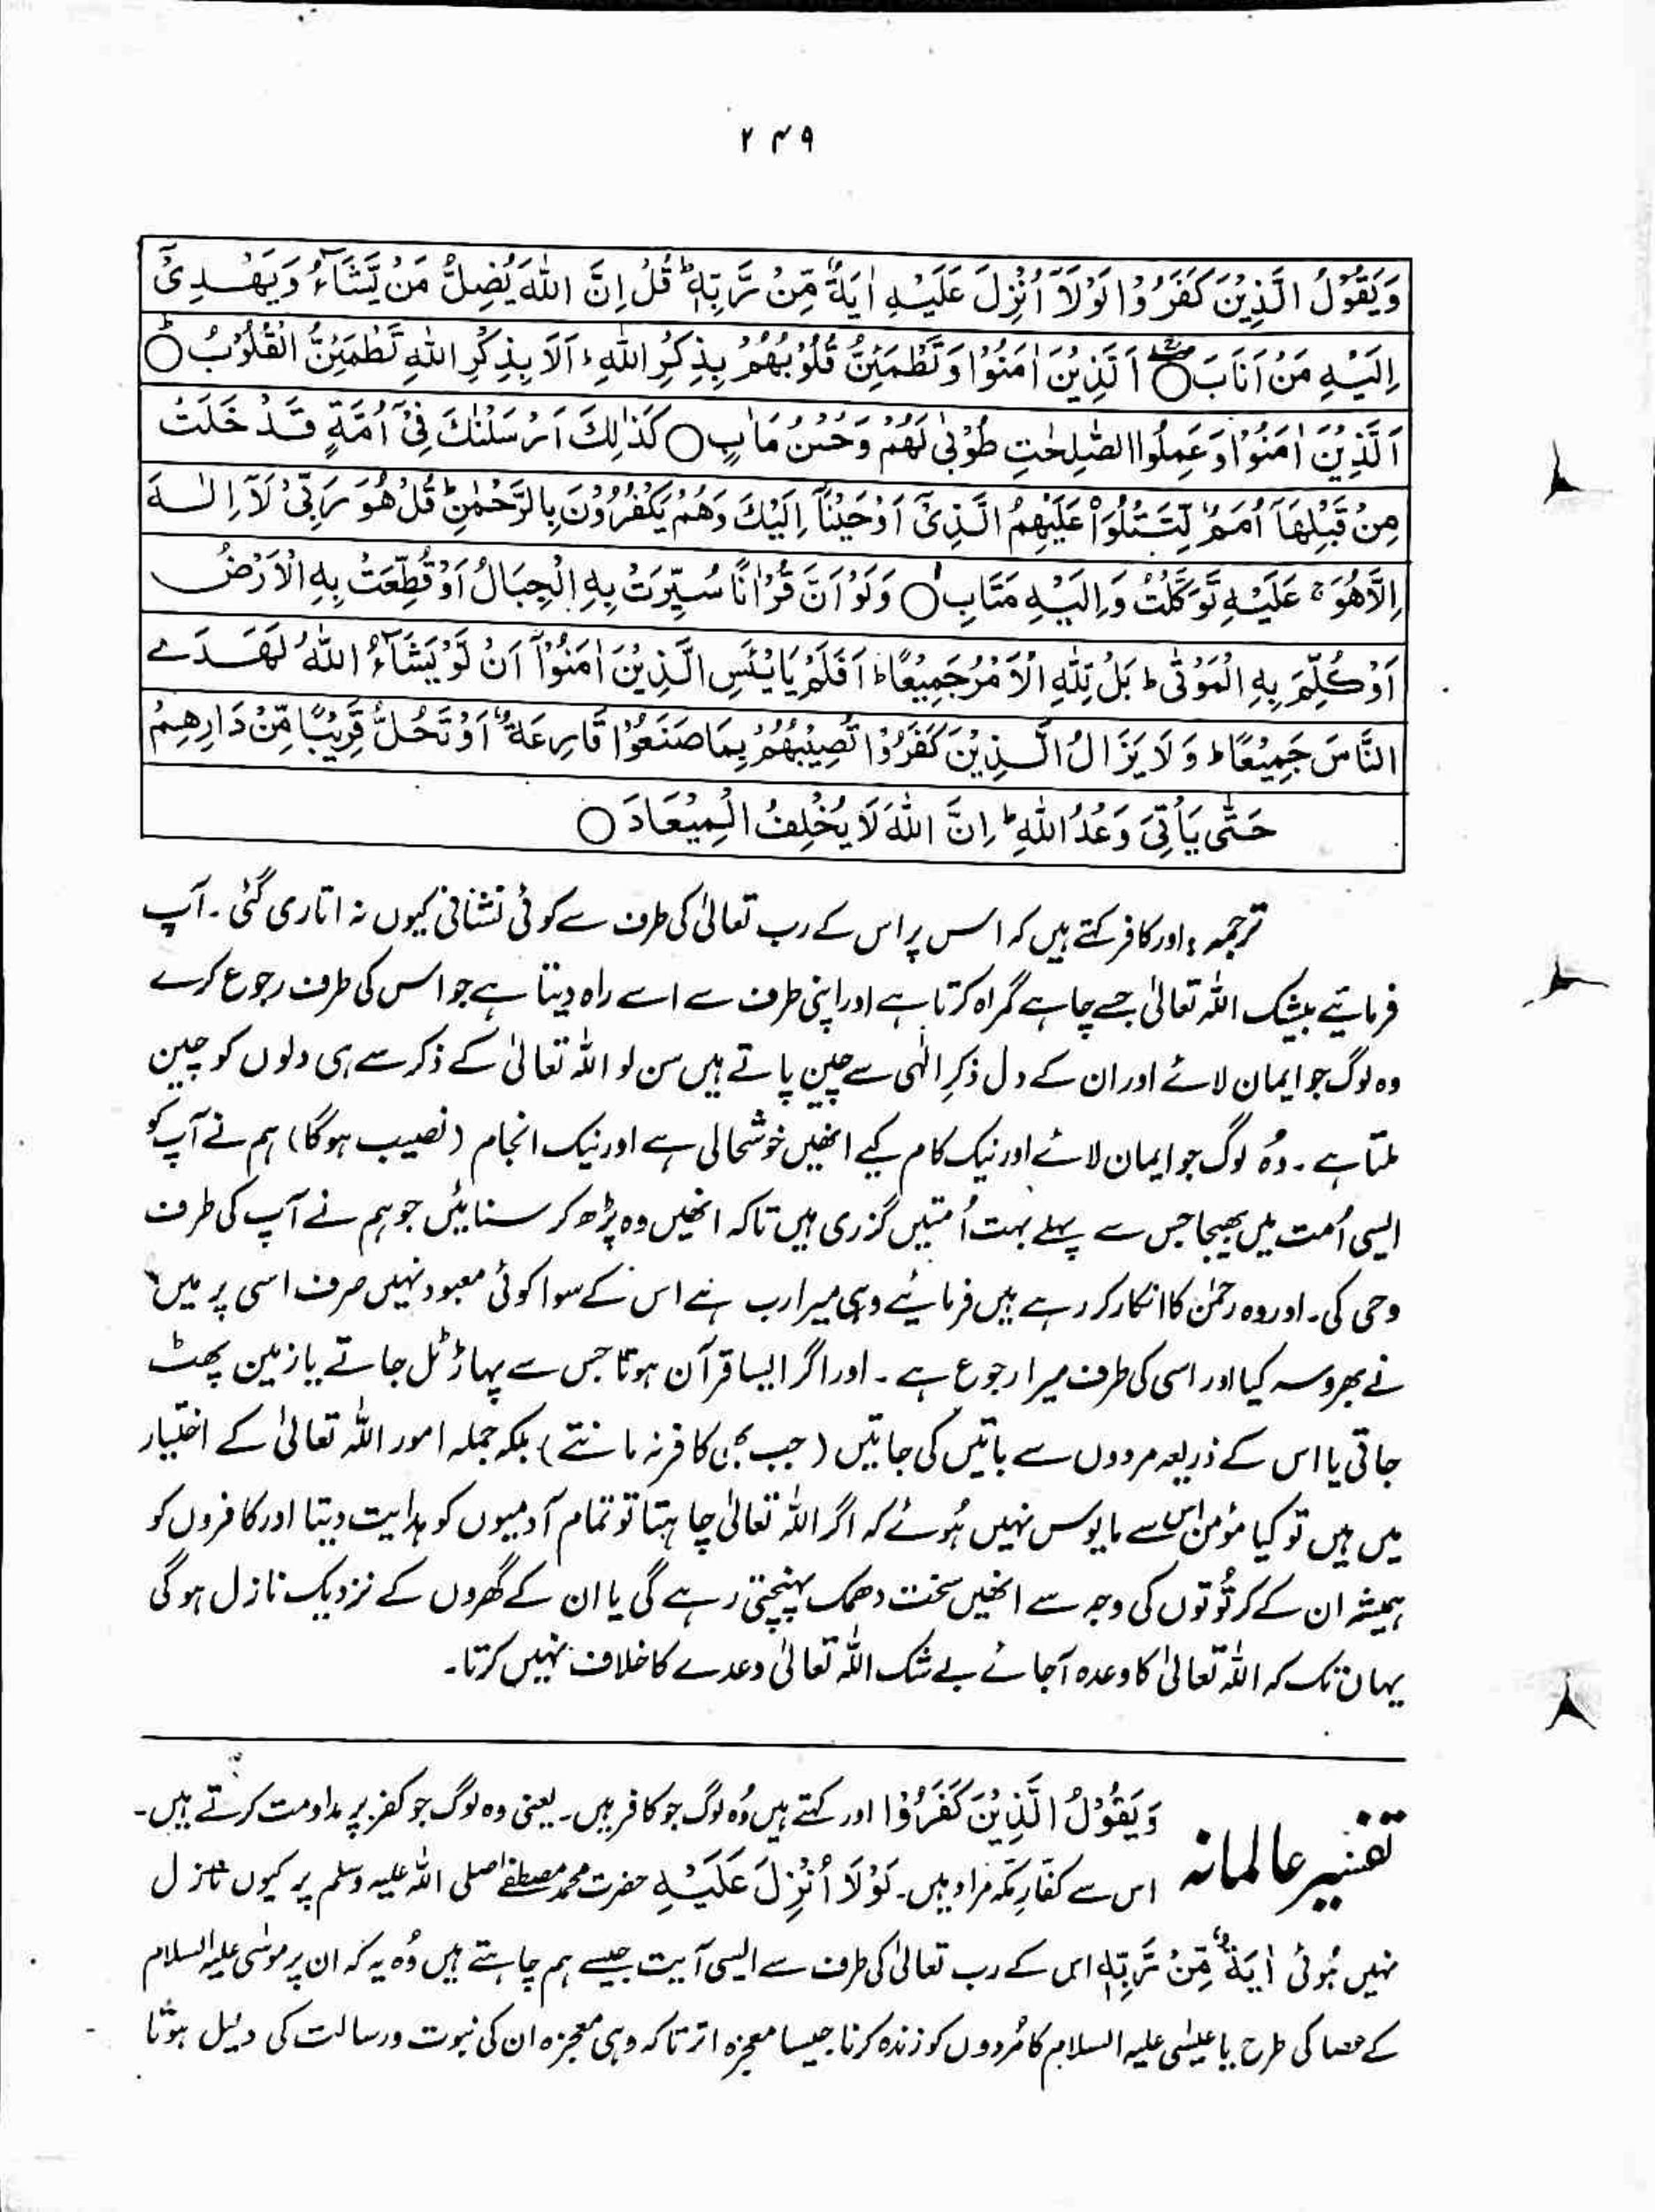 ۲۴۹
وَيَقُوْلُ الَّذِيْنَ كَفَرُوْا لَوْلَآ اُنْزِلَ عَلَيْهِ اٰيَةٌ مِّنْ رَّبِّهٖ ؕ قُلْ اِنَّ اللّٰهَ يُضِلُّ مَنْ يَّشَآءُ وَيَهْدِىْٓ
اِلَيْهِ مَنْ اَنَابَ ۝ اَلَّذِيْنَ اٰمَنُوْا وَتَطْمَئِنُّ قُلُوْبُهُمْ بِذِكْرِ اللّٰهِ ؕ اَلَا بِذِكْرِ اللّٰهِ تَطْمَئِنُّ الْقُلُوْبُ ۝
اَلَّذِيْنَ اٰمَنُوْا وَعَمِلُوا الصّٰلِحٰتِ طُوْبٰى لَهُمْ وَحُسْنُ مَاٰبٍ ۝ كَذٰلِكَ اَرْسَلْنٰكَ فِىْٓ اُمَّةٍ قَدْ خَلَتْ
مِنْ قَبْلِهَآ اُمَمٌ لِّتَتْلُوَا۟ عَلَيْهِمُ الَّذِىْٓ اَوْحَيْنَآ اِلَيْكَ وَهُمْ يَكْفُرُوْنَ بِالرَّحْمٰنِ ؕ قُلْ هُوَ رَبِّىْ لَآ اِلٰهَ
اِلَّا هُوَ ۚ عَلَيْهِ تَوَكَّلْتُ وَاِلَيْهِ مَتَابِ ۝ وَلَوْ اَنَّ قُرْاٰنًا سُيِّرَتْ بِهِ الْجِبَالُ اَوْ قُطِّعَتْ بِهِ الْاَرْضُ
اَوْ كُلِّمَ بِهِ الْمَوْتٰى ؕ بَلْ لِّلّٰهِ الْاَمْرُ جَمِيْعًا ؕ اَفَلَمْ يَايْـَٔسِ الَّذِيْنَ اٰمَنُوْٓا اَنْ لَّوْ يَشَآءُ اللّٰهُ لَهَدَے
النَّاسَ جَمِيْعًا ؕ وَلَا يَزَالُ الَّذِيْنَ كَفَرُوْا تُصِيْبُهُمْ بِمَا صَنَعُوْا قَارِعَةٌ اَوْ تَحُلُّ قَرِيْبًا مِّنْ دَارِهِمْ
حَتّٰى يَاْتِىَ وَعْدُ اللّٰهِ ؕ اِنَّ اللّٰهَ لَا يُخْلِفُ الْمِيْعَادَ ۝
ترجمہ : اور کافر کہتے ہیں کہ اس پر اس کے رب تعالیٰ کی طرف سے کوئی نشانی کیوں نہ اتاری گئی ۔ آپ
فرمائیے بیشک اللہ تعالیٰ جسے چاہے گمراہ کرتا ہے اور اپنی طرف سے اسے راہ دیتا ہے جو اس کی طرف رجوع کرے
وہ لوگ جو ایمان لائے اور ان کے دل ذکرِ الٰہی سے چین پاتے ہیں سن لو اللہ تعالیٰ کے ذکر سے ہی دلوں کو چین
ملتا ہے ۔ وُہ لوگ جو ایمان لائے اور نیک کام کیے انھیں خوشحالی ہے اور نیک انجام (نصیب ہوگا) ہم نے آپ کو
ایسی اُمت میں بھیجا جس سے پہلے بہت اُمتیں گزری ہیں تاکہ انھیں وہ پڑھ کر سنائیں جو ہم نے آپ کی طرف
وحی کی ۔ اور وہ رحمٰن کا انکار کر رہے ہیں فرمائیے وہی میرا رب ہے اس کے سوا کوئی معبود نہیں صرف اسی پر میں
نے بھروسہ کیا اور اسی کی طرف میرا رجوع ہے ۔ اور اگر ایسا قرآن ہوتا جس سے پہاڑ ٹل جاتے یا زمین پھٹ
جاتی یا اس کے ذریعہ مردوں سے باتیں کی جاتیں (جب بھی کافر نہ مانتے) بلکہ جملہ امور اللہ تعالیٰ کے اختیار
میں ہیں تو کیا مؤمن اس سے مایوس نہیں ہُوئے کہ اگر اللہ تعالیٰ چاہتا تو تمام آدمیوں کو ہدایت دیتا اور کافروں کو
ہمیشہ ان کے کرتُوتوں کی وجہ سے انھیں سخت دھمک پہنچتی رہے گی یا ان کے گھروں کے نزدیک نازل ہوگی
یہاں تک کہ اللہ تعالیٰ کا وعدہ آجائے بے شک اللہ تعالیٰ وعدے کا خلاف نہیں کرتا ۔
تفسیر عالمانہ
وَيَقُوْلُ الَّذِيْنَ كَفَرُوْا اور کہتے ہیں وُہ لوگ جو کافر ہیں ۔ یعنی وہ لوگ جو کفر پر مداومت کرتے ہیں ۔
اس سے کفّارِ مکّہ مراد ہیں ۔ لَوْلَا اُنْزِلَ عَلَيْهِ حضرت محمد مصطفےٰ صلی اللہ علیہ وسلم پر کیوں نازل
نہیں ہُوئی اٰيَةٌ مِّنْ رَّبِّهٖ اس کے رب تعالیٰ کی طرف سے ایسی آیت جیسے ہم چاہتے ہیں وُہ یہ کہ ان پر موسٰی علیہ السلام
کے عصا کی طرح یا عیسٰی علیہ السلام کا مُردوں کو زندہ کرنا جیسا معجزہ اترتا کہ وہی معجزہ ان کی نبوت ورسالت کی دلیل ہوتا